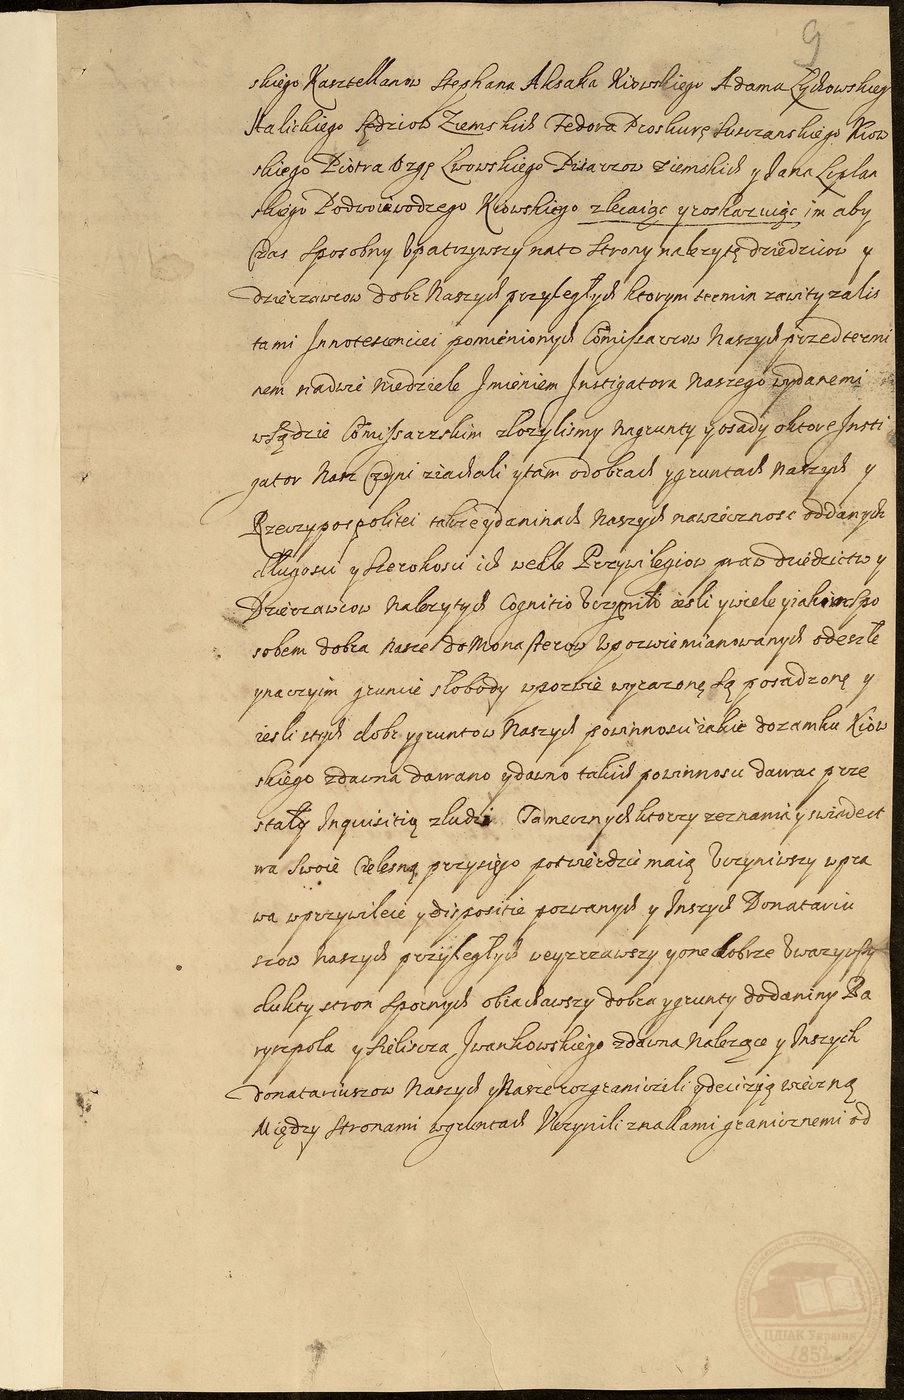 9
skiego Kasztellanow Stephana Aksaka Kiowskiego Adama Łychowskieg
Halickiego Sędziow Ziemskich Fedora Proskurę Suszczanskiego Kiow
skiego Piotra Ozgę Lwowskiego Pisarzow ziemskich y Jana
skiego Podwoiewodzego Kiowskiego zlecaiąc y roskazuiąc im aby
Czas sposobny upatrzywszy na to strony nalezytę dziedzicow y
dzierzawcow dobr Naszych przyległych ktorym termin zawity za lis
tami Innotescenciei pomienionych Commissarzow Naszych przed termi
nem na dwie Niedziele Jmieniem Instigatora Naszego wydanemi
w Sądzie Commissarzskim złozylismy Na grunty y osady o ktore Insti
gator Nasz Czyni ziachali y tam o dobrach y gruntach Naszych y
Rzeczypospolitei takze y daninach Naszych na wiecznosc oddanych
długosci y szerokosci ich wedle Przywilegiow praw dziedzictw y
Dzierzawcow Nalezytych Cognitio uczynili iesli y wiele y iakim spo
sobem dobra Nasze do Monasterow w pozwie mianowanych odeszłe
y na czyim gruncie słobody w pozwie wyrazonę są posadzonę y
iesli s tych dobr y gruntow Naszych powinnosci iakie do zamku Kiow
skiego zdawna dawano y dawno takich powinnosci dawac prze
stały Inquisitią z ludzi Tamecznych ktorzy zeznania y swiadect
wa swoie Cielesną przysięgo potwierdzic maią uczyniwszy w pra
wa w przywileie y dispositie pozwanych y Inszych Donatariu
szow Naszych przyległych weyzrzawszy y one dobrze uwazywszy
dukty stron spornych obiachawszy dobra y grunty do daniny Ba
ryszpola y Sieliscza Jwankowskiego zdawna Nalezące y Inszych
Donatariuszow Naszych y Nasze rozgraniczili y decizią wieczną
Między Stronami w gruntach Uczynili znakami granicznemi od
ЦДІАК України
1852